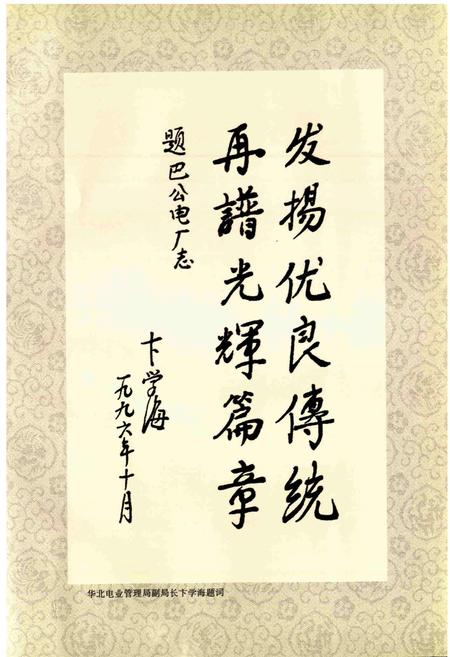 发揚优良傳统
再譜光輝篇章
题巴公电厂志
卞学海
一九九六年十月
华北电业管理局副局长卞学海题词